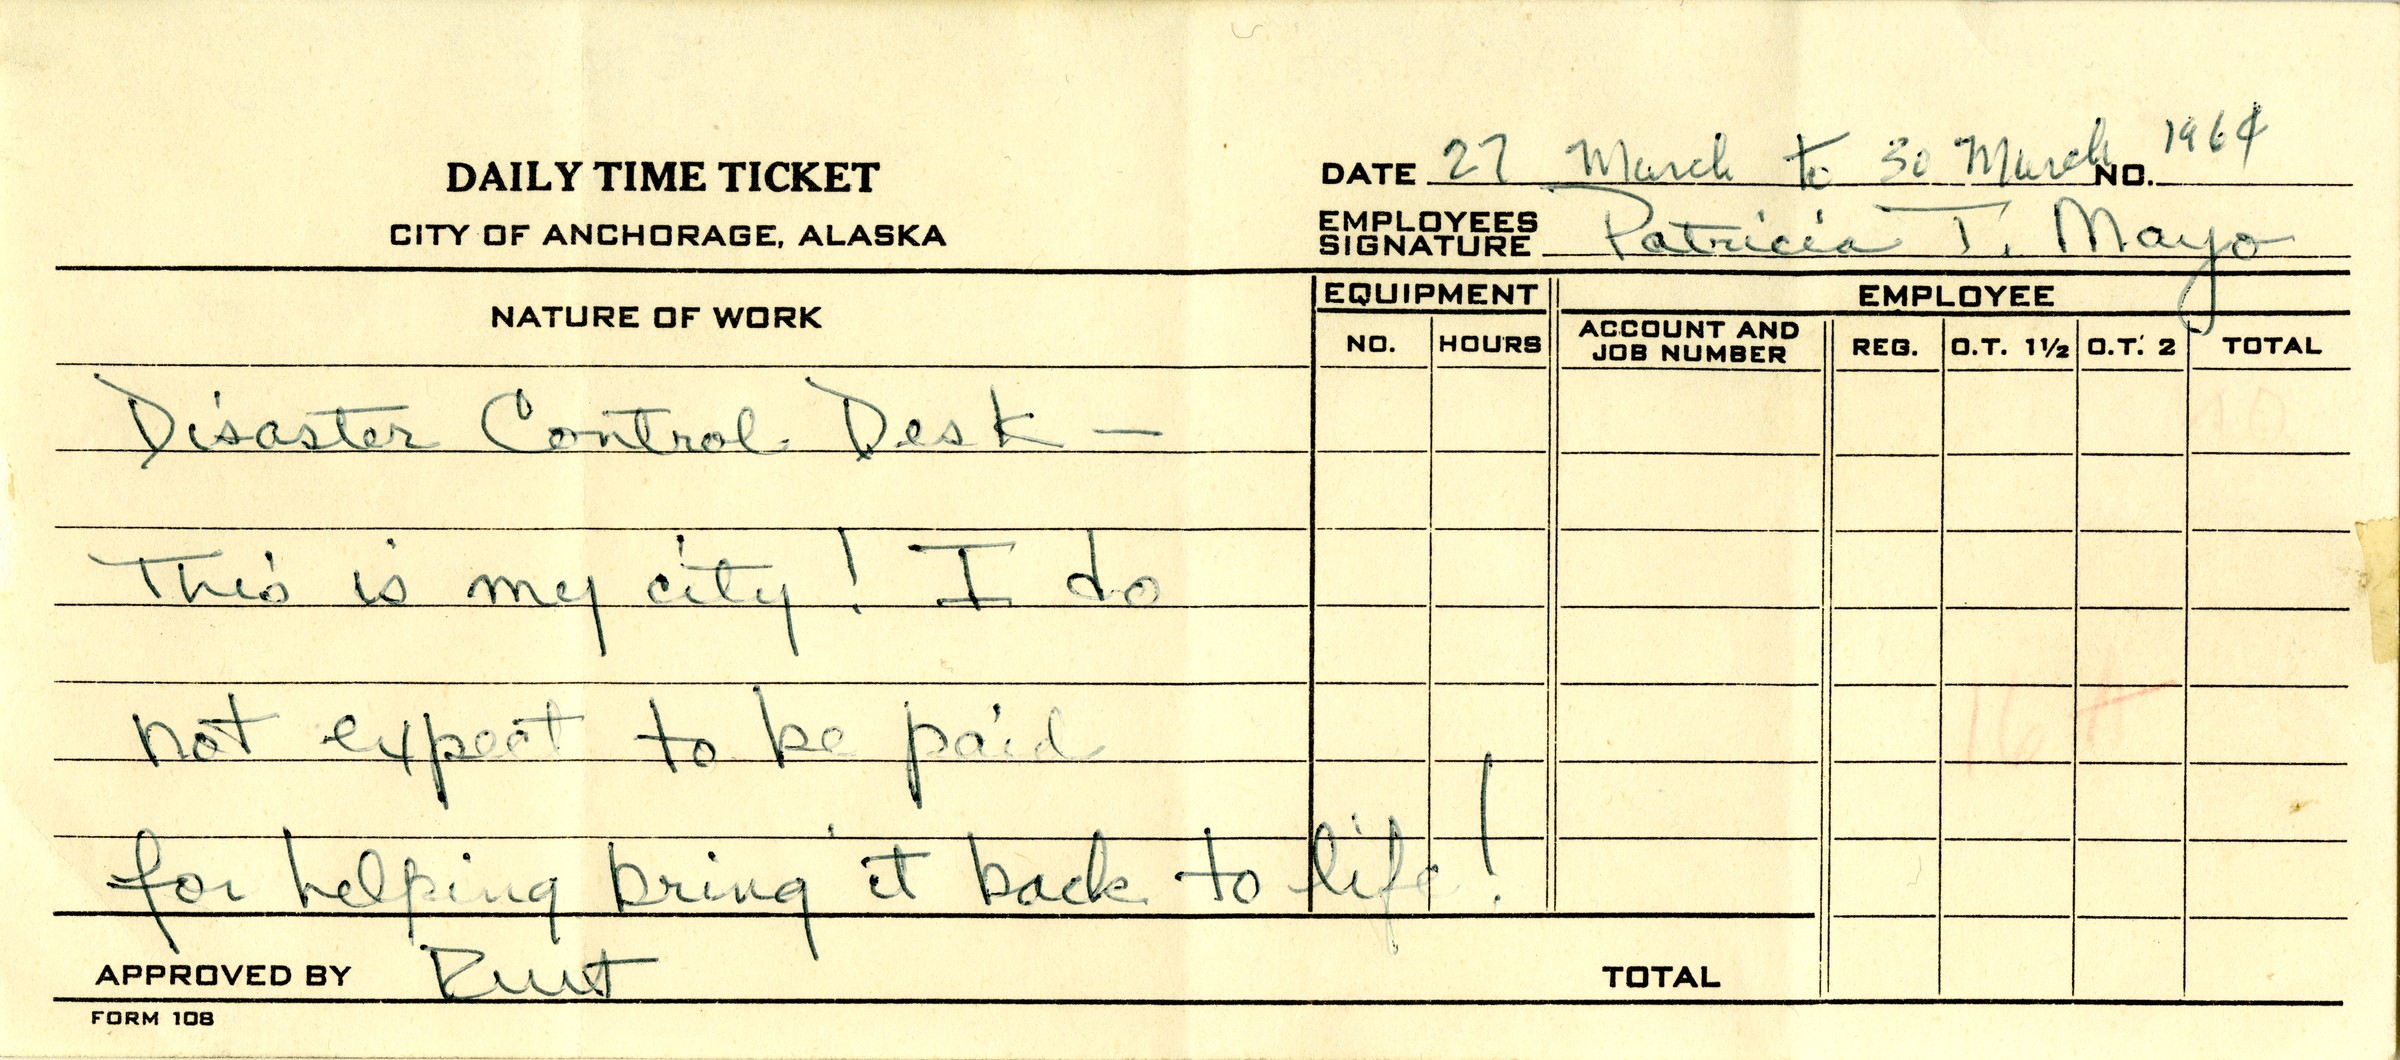 DAILY TIME TICKET
CITY OF ANCHORAGE, ALASKA
DATE 27 March to 30 March NO. 1964
EMPLOYEES SIGNATURE Patricia T. Mayo
NATURE OF WORK
EQUIPMENT
EMPLOYEE
NO. HOURS ACCOUNT AND JOB NUMBER REG. O.T. 1½ O.T. 2 TOTAL
Disaster Control Desk —
This is my city! I do
not expect to be paid
for helping bring it back to life!
APPROVED BY
TOTAL
FORM 108